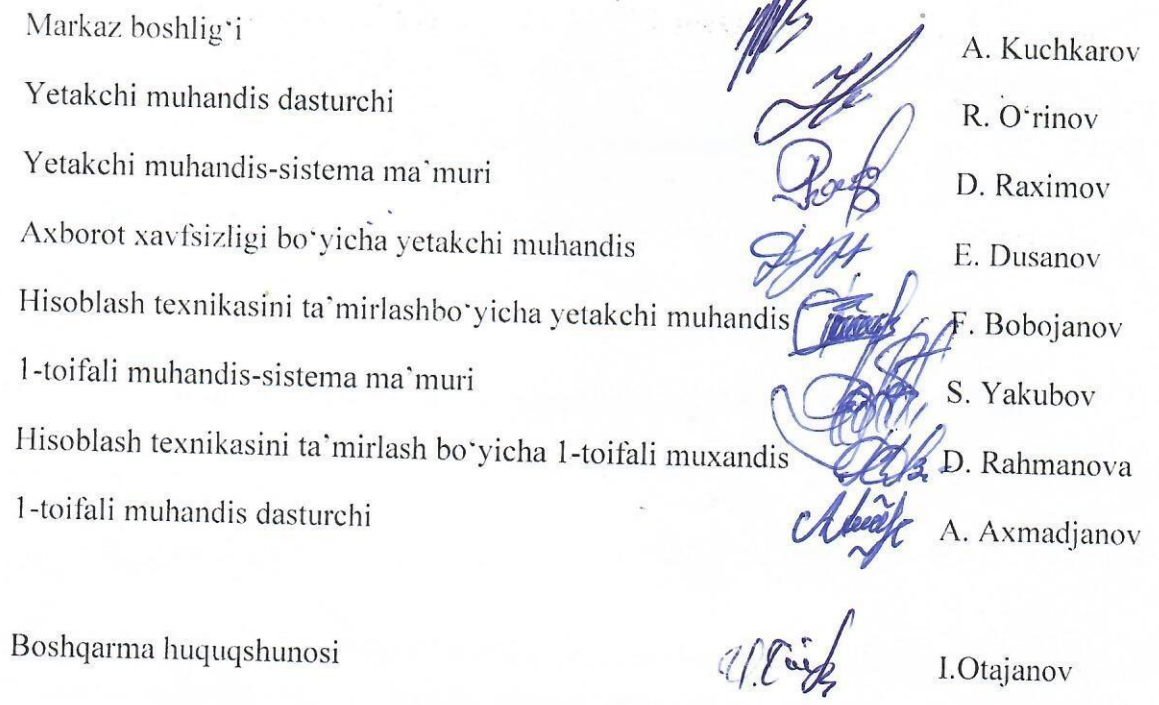 Markaz boshlig‘i A. Kuchkarov
Yetakchi muhandis dasturchi R. O‘rinov
Yetakchi muhandis-sistema ma`muri D. Raximov
Axborot xavfsizligi bo‘yicha yetakchi muhandis E. Dusanov
Hisoblash texnikasini ta`mirlashbo‘yicha yetakchi muhandis F. Bobojanov
1-toifali muhandis-sistema ma`muri S. Yakubov
Hisoblash texnikasini ta`mirlash bo‘yicha 1-toifali muxandis D. Rahmanova
1-toifali muhandis dasturchi A. Axmadjanov
Boshqarma huquqshunosi I.Otajanov